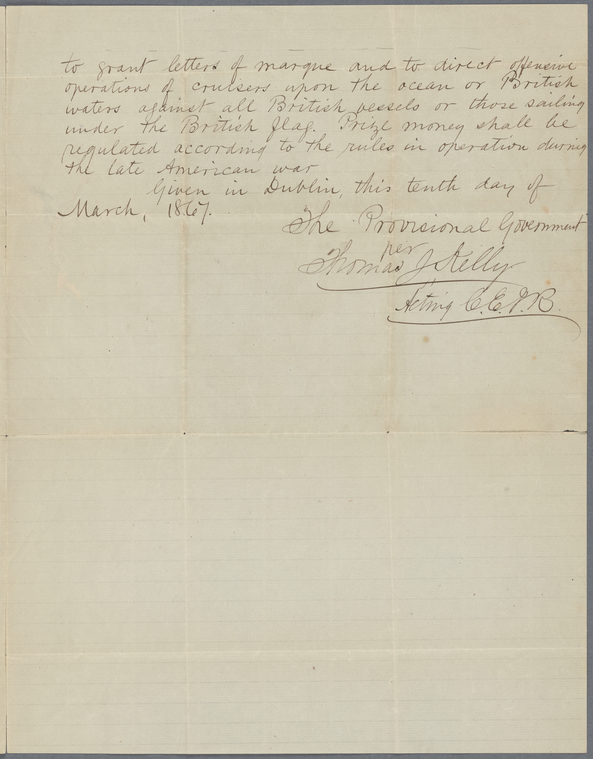 to grant letters of marque and to direct offensive
operations of cruisers upon the ocean or British
waters against all British vessels or those sailing
under the British flag. Prize money shall be
regulated according to the rules in operation during
the late American war
Given in Dublin, this tenth day of
March, 1867.
The Provisional Government
per
Thomas J Kelly
Acting C.E.I.R.